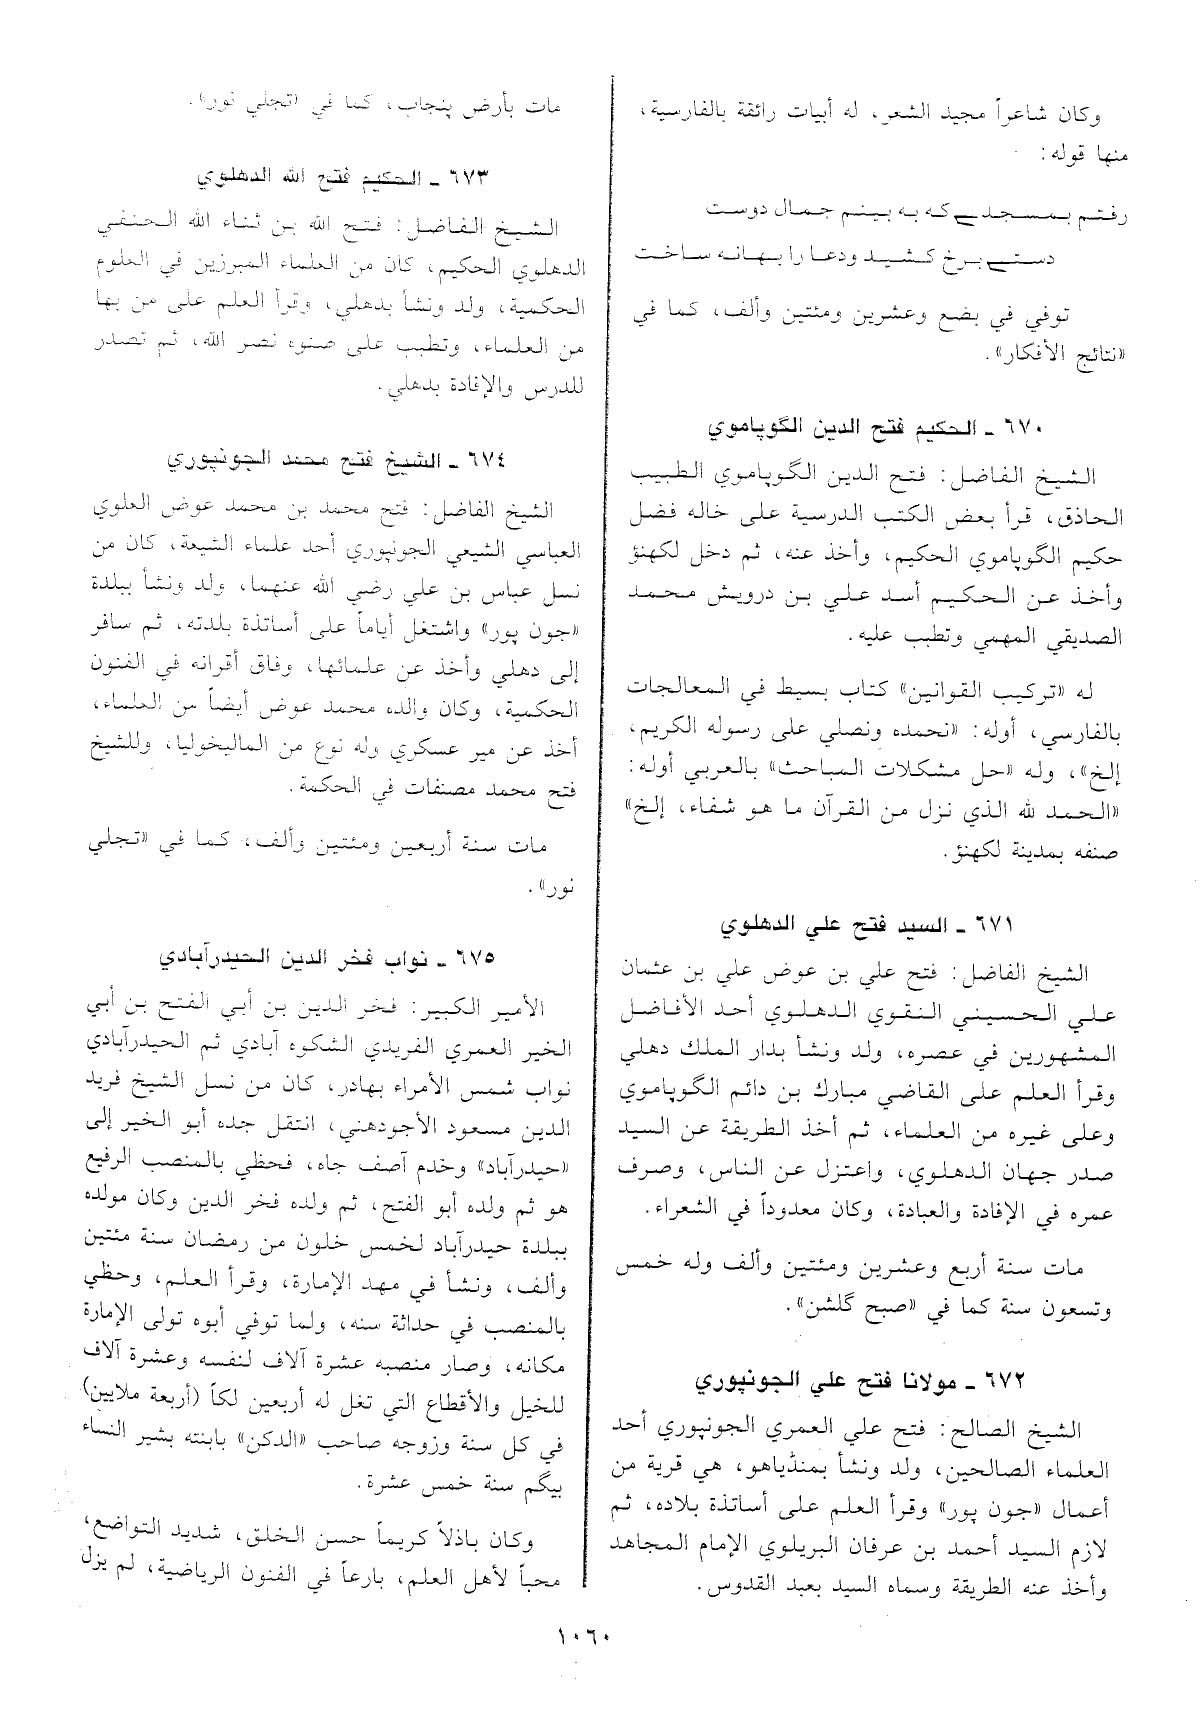 وكان شاعراً مجيد الشعر، له أبيات رائقة بالفارسية،
منها قوله:
رفتم بمسجدے که به بينم جمال دوست
دستے برخ کشيد ودعا را بهانه ساخت
توفي في بضع وعشرين ومئتين وألف، كما في
«نتائج الأفكار».
٦٧٠ ـ الحكيم فتح الدين الگوپاموي
الشيخ الفاضل: فتح الدين الگوپاموي الطبيب
الحاذق، قرأ بعض الكتب الدرسية على خاله فضل
حكيم الگوپاموي الحكيم، وأخذ عنه، ثم دخل لكهنؤ
وأخذ عن الحكيم أسد علي بن درويش محمد
الصديقي المهمي وتطبب عليه.
له «تركيب القوانين» كتاب بسيط في المعالجات
بالفارسي، أوله: «نحمده ونصلي على رسوله الكريم،
إلخ»، وله «حل مشكلات المباحث» بالعربي أوله:
«الحمد لله الذي نزل من القرآن ما هو شفاء، إلخ»
صنفه بمدينة لكهنؤ.
٦٧١ ـ السيد فتح علي الدهلوي
الشيخ الفاضل: فتح علي بن عوض علي بن عثمان
علي الحسيني النقوي الدهلوي أحد الأفاضل
المشهورين في عصره، ولد ونشأ بدار الملك دهلي
وقرأ العلم على القاضي مبارك بن دائم الگوپاموي
وعلى غيره من العلماء، ثم أخذ الطريقة عن السيد
صدر جهان الدهلوي، واعتزل عن الناس، وصرف
عمره في الإفادة والعبادة، وكان معدوداً في الشعراء.
مات سنة أربع وعشرين ومئتين وألف وله خمس
وتسعون سنة كما في «صبح گلشن».
٦٧٢ ـ مولانا فتح علي الجونپوري
الشيخ الصالح: فتح علي العمري الجونپوري أحد
العلماء الصالحين، ولد ونشأ بمنڈياهو، هي قرية من
أعمال «جون پور» وقرأ العلم على أساتذة بلاده، ثم
لازم السيد أحمد بن عرفان البريلوي الإمام المجاهد
وأخذ عنه الطريقة وسماه السيد بعبد القدوس.
مات بأرض پنجاب، كما في «تجلي نور».
٦٧٣ ـ الحكيم فتح الله الدهلوي
الشيخ الفاضل: فتح الله بن ثناء الله الحنفي
الدهلوي الحكيم، كان من العلماء المبرزين في العلوم
الحكمية، ولد ونشأ بدهلي، وقرأ العلم على من بها
من العلماء، وتطبب على صنوه نصر الله، ثم تصدر
للدرس والإفادة بدهلي.
٦٧٤ ـ الشيخ فتح محمد الجونپوري
الشيخ الفاضل: فتح محمد بن محمد عوض العلوي
العباسي الشيعي الجونپوري أحد علماء الشيعة، كان من
نسل عباس بن علي رضي الله عنهما، ولد ونشأ ببلدة
«جون پور» واشتغل أياماً على أساتذة بلدته، ثم سافر
إلى دهلي وأخذ عن علمائها، وفاق أقرانه في الفنون
الحكمية، وكان والده محمد عوض أيضاً من العلماء،
أخذ عن مير عسكري وله نوع من الماليخوليا، وللشيخ
فتح محمد مصنفات في الحكمة.
مات سنة أربعين ومئتين وألف، كما في «تجلي
نور».
٦٧٥ ـ نواب فخر الدين الحيدرآبادي
الأمير الكبير: فخر الدين بن أبي الفتح بن أبي
الخير العمري الفريدي الشكوه آبادي ثم الحيدرآبادي
نواب شمس الأمراء بهادر، كان من نسل الشيخ فريد
الدين مسعود الأجودهني، انتقل جده أبو الخير إلى
«حيدرآباد» وخدم آصف جاه، فحظي بالمنصب الرفيع
هو ثم ولده أبو الفتح، ثم ولده فخر الدين وكان مولده
ببلدة حيدرآباد لخمس خلون من رمضان سنة مئتين
وألف، ونشأ في مهد الإمارة، وقرأ العلم، وحظي
بالمنصب في حداثة سنه، ولما توفي أبوه تولى الإمارة
مكانه، وصار منصبه عشرة آلاف لنفسه وعشرة آلاف
للخيل والأقطاع التي تغل له أربعين لكاً (أربعة ملايين)
في كل سنة وزوجه صاحب «الدكن» بابنته بشير النساء
بيگم سنة خمس عشرة.
وكان باذلاً كريماً حسن الخلق، شديد التواضع،
محباً لأهل العلم، بارعاً في الفنون الرياضية، لم يزل
١٠٦٠